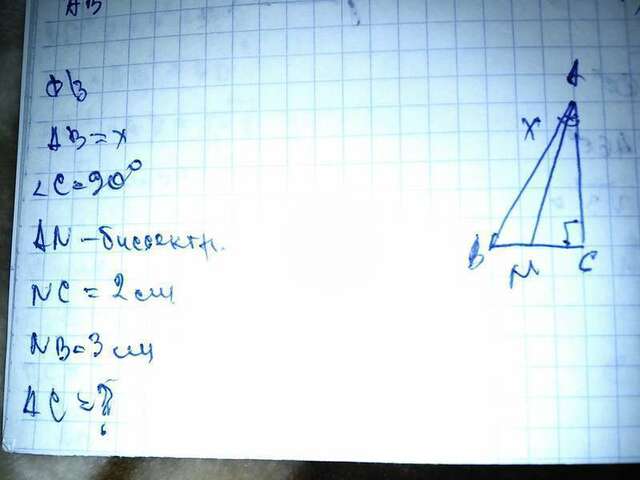 AB
AB = x
∠C = 90°
AN - биссектр.
NC = 2 см
NB = 3 см
AC = ?
A
x
B
N
C